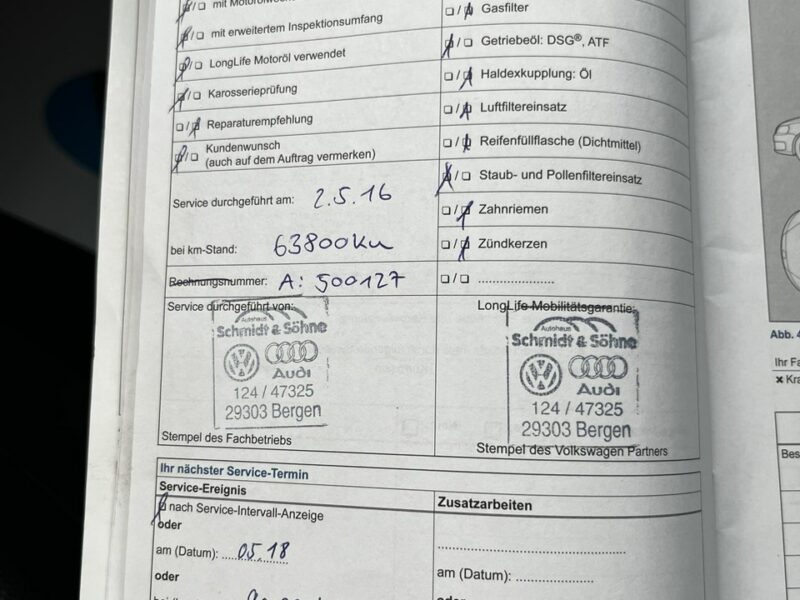 mit Motorölwech
mit erweitertem Inspektionsumfang
LongLife Motoröl verwendet
Karosserieprüfung
Reparaturempfehlung
Kundenwunsch
(auch auf dem Auftrag vermerken)
Service durchgeführt am: 2.5.16
bei km-Stand: 63800km
Rechnungsnummer: A: 500127
Service durchgeführt von:
Autohaus
Schmidt & Söhne
Audi
124 / 47325
29303 Bergen
Stempel des Fachbetriebs
Gasfilter
Getriebeöl: DSG®, ATF
Haldexkupplung: Öl
Luftfiltereinsatz
Reifenfüllflasche (Dichtmittel)
Staub- und Pollenfiltereinsatz
Zahnriemen
Zündkerzen
....................
LongLife-Mobilitätsgarantie:
Autohaus
Schmidt & Söhne
Audi
124 / 47325
29303 Bergen
Stempel des Volkswagen Partners
Ihr nächster Service-Termin
Service-Ereignis
nach Service-Intervall-Anzeige
oder
am (Datum): 05.18
oder
Zusatzarbeiten
am (Datum):
oder
Abb. 4
Ihr Fa
Kra
Bes